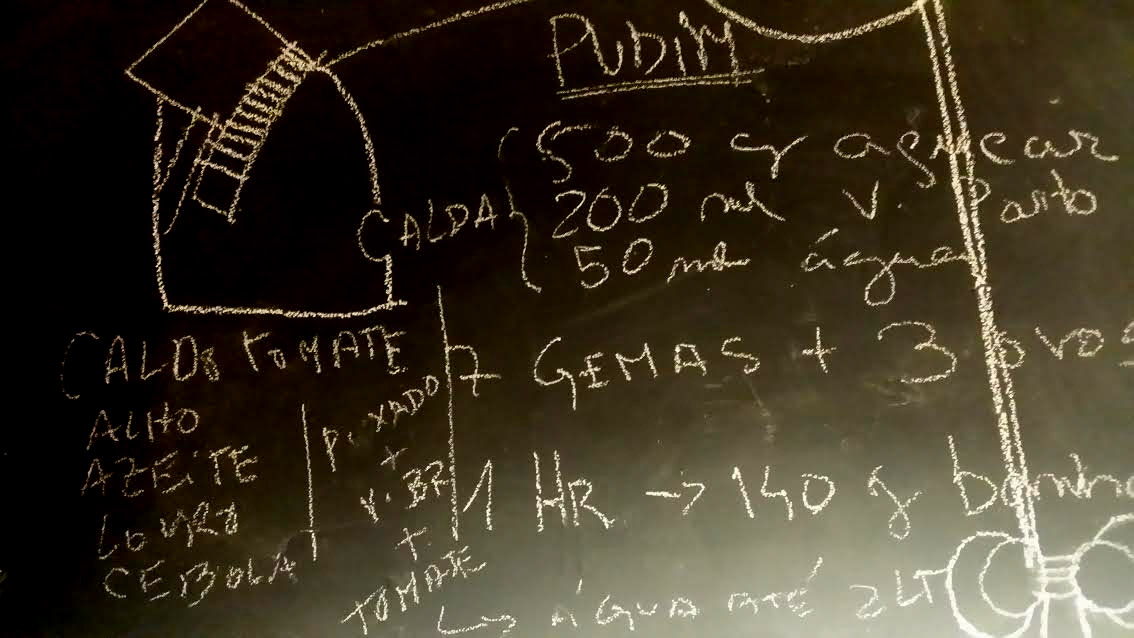 PUDIM
CALDA { 500 gr açúcar
200 ml V. Porto
50 ml água
7 GEMAS + 3 ovos
1 HR → 140 g banho
CALDO TOMATE
ALHO
AZEITE
LOURO
CEBOLA
PiXADO
+
V. BR
+
TOMATE
↳ ÁGUA ATÉ 2LT